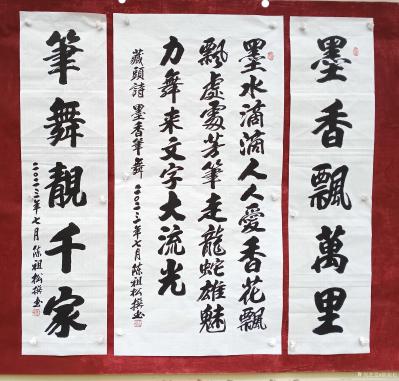 墨香飄萬里
墨水滴滴人人愛香花飄
飄處處芳筆走龍蛇雄魅
力舞来文字大流光
藏頭詩 墨香筆舞 二〇二三年七月 陈祖松撰书
筆舞靚千家
二〇二三年七月 陈祖松撰书